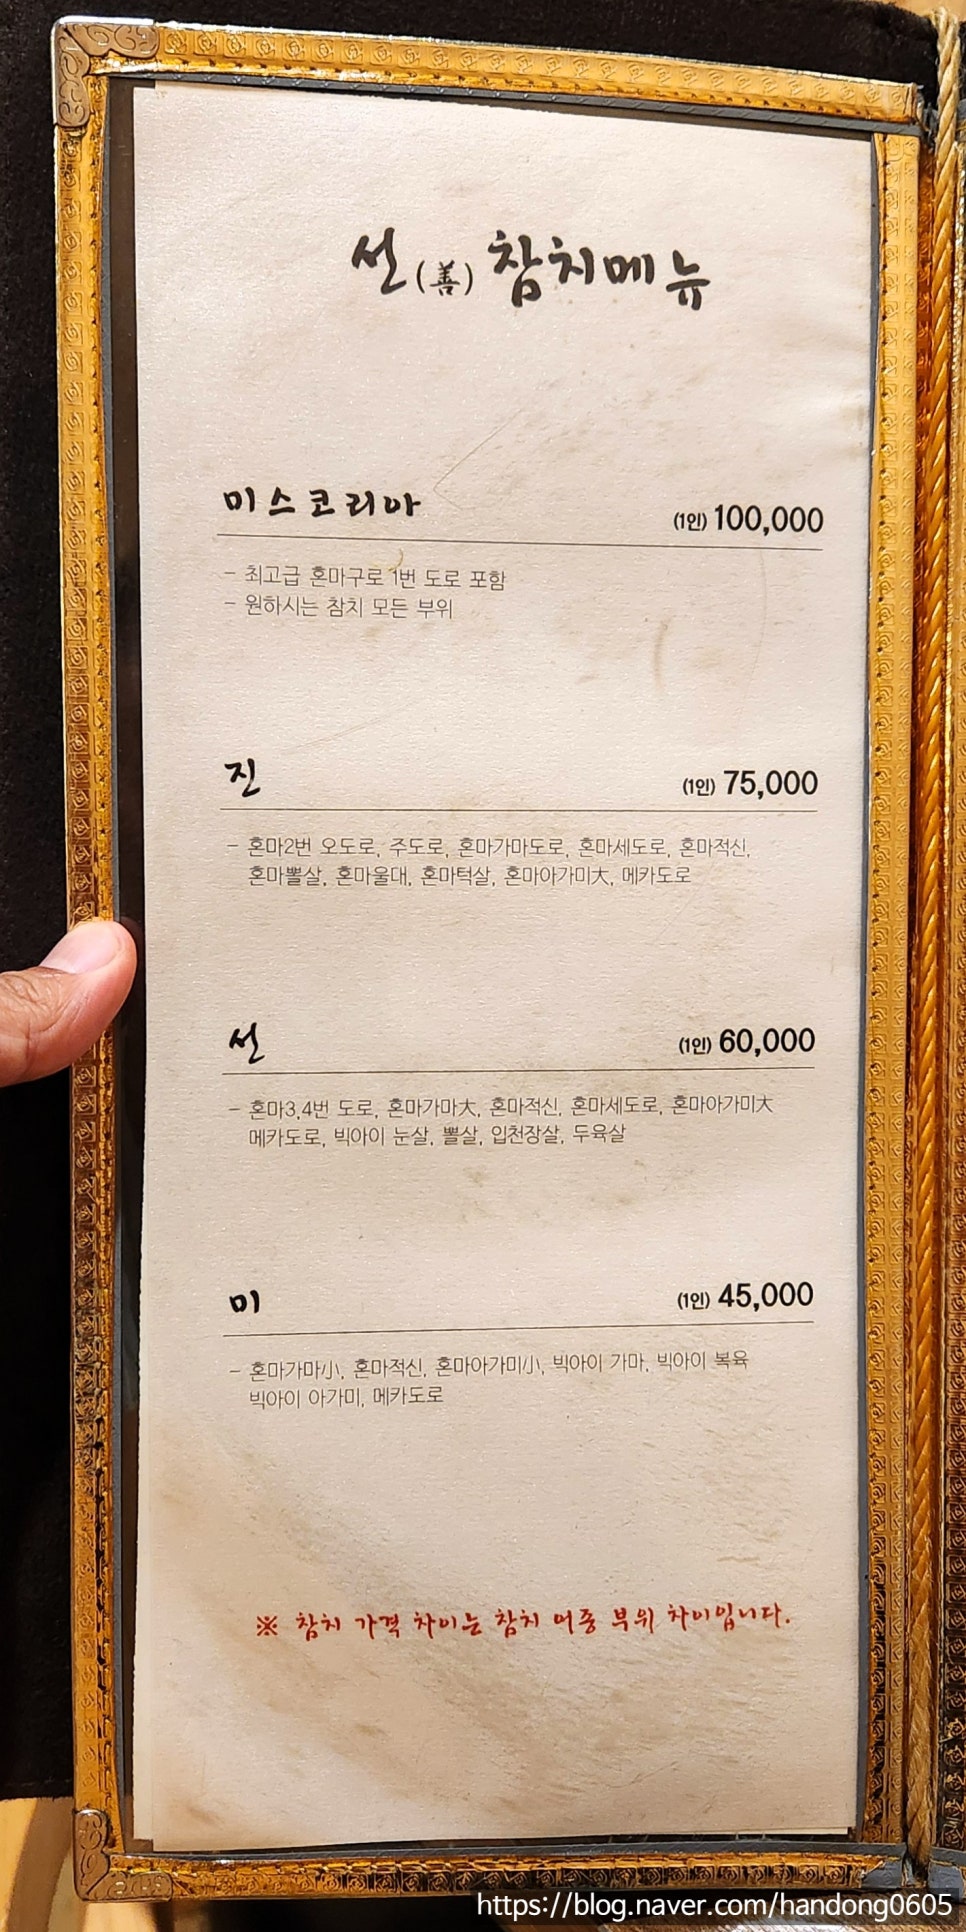 선(善) 참치메뉴
미스코리아 (1인) 100,000
- 최고급 혼마구로 1번 도로 포함
- 원하시는 참치 모든 부위
진 (1인) 75,000
- 혼마2번 오도로, 주도로, 혼마가마도로, 혼마세도로, 혼마적신,
혼마뽈살, 혼마울대, 혼마턱살, 혼마아가미大, 메카도로
선 (1인) 60,000
- 혼마3,4번 도로, 혼마가마大, 혼마적신, 혼마세도로, 혼마아가미大
메카도로, 빅아이 눈살, 뽈살, 입천장살, 두육살
미 (1인) 45,000
- 혼마가마小, 혼마적신, 혼마아가미小, 빅아이 가마, 빅아이 복육
빅아이 아가미, 메카도로
※ 참치 가격 차이는 참치 어종 부위 차이입니다.
https://blog.naver.com/handong0605